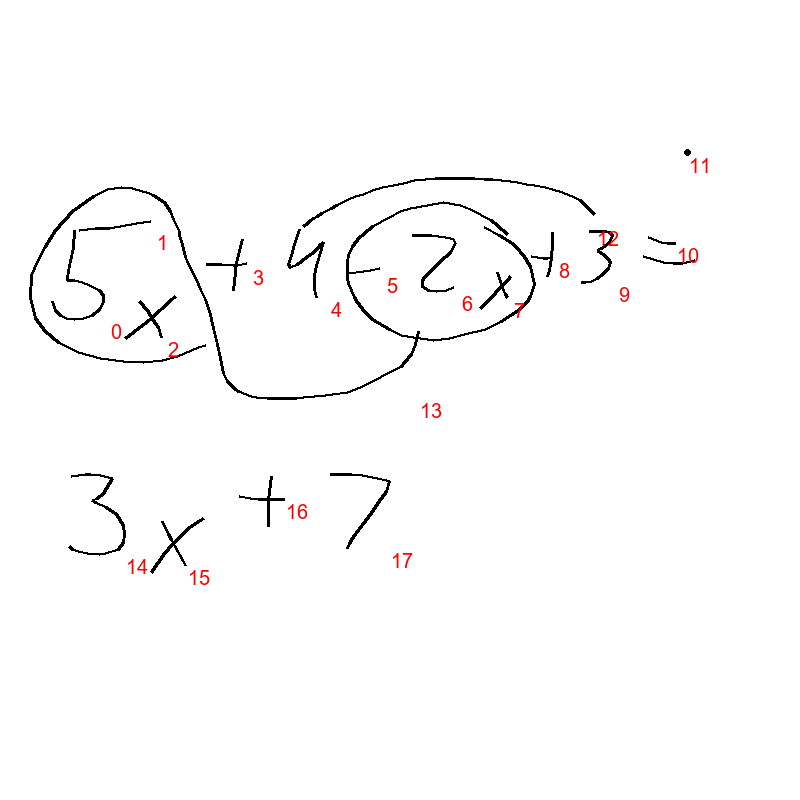 5x + 4 - 2x + 3 =
3x + 7
0 1 2 3 4 5 6 7 8 9 10 11 12 13 14 15 16 17